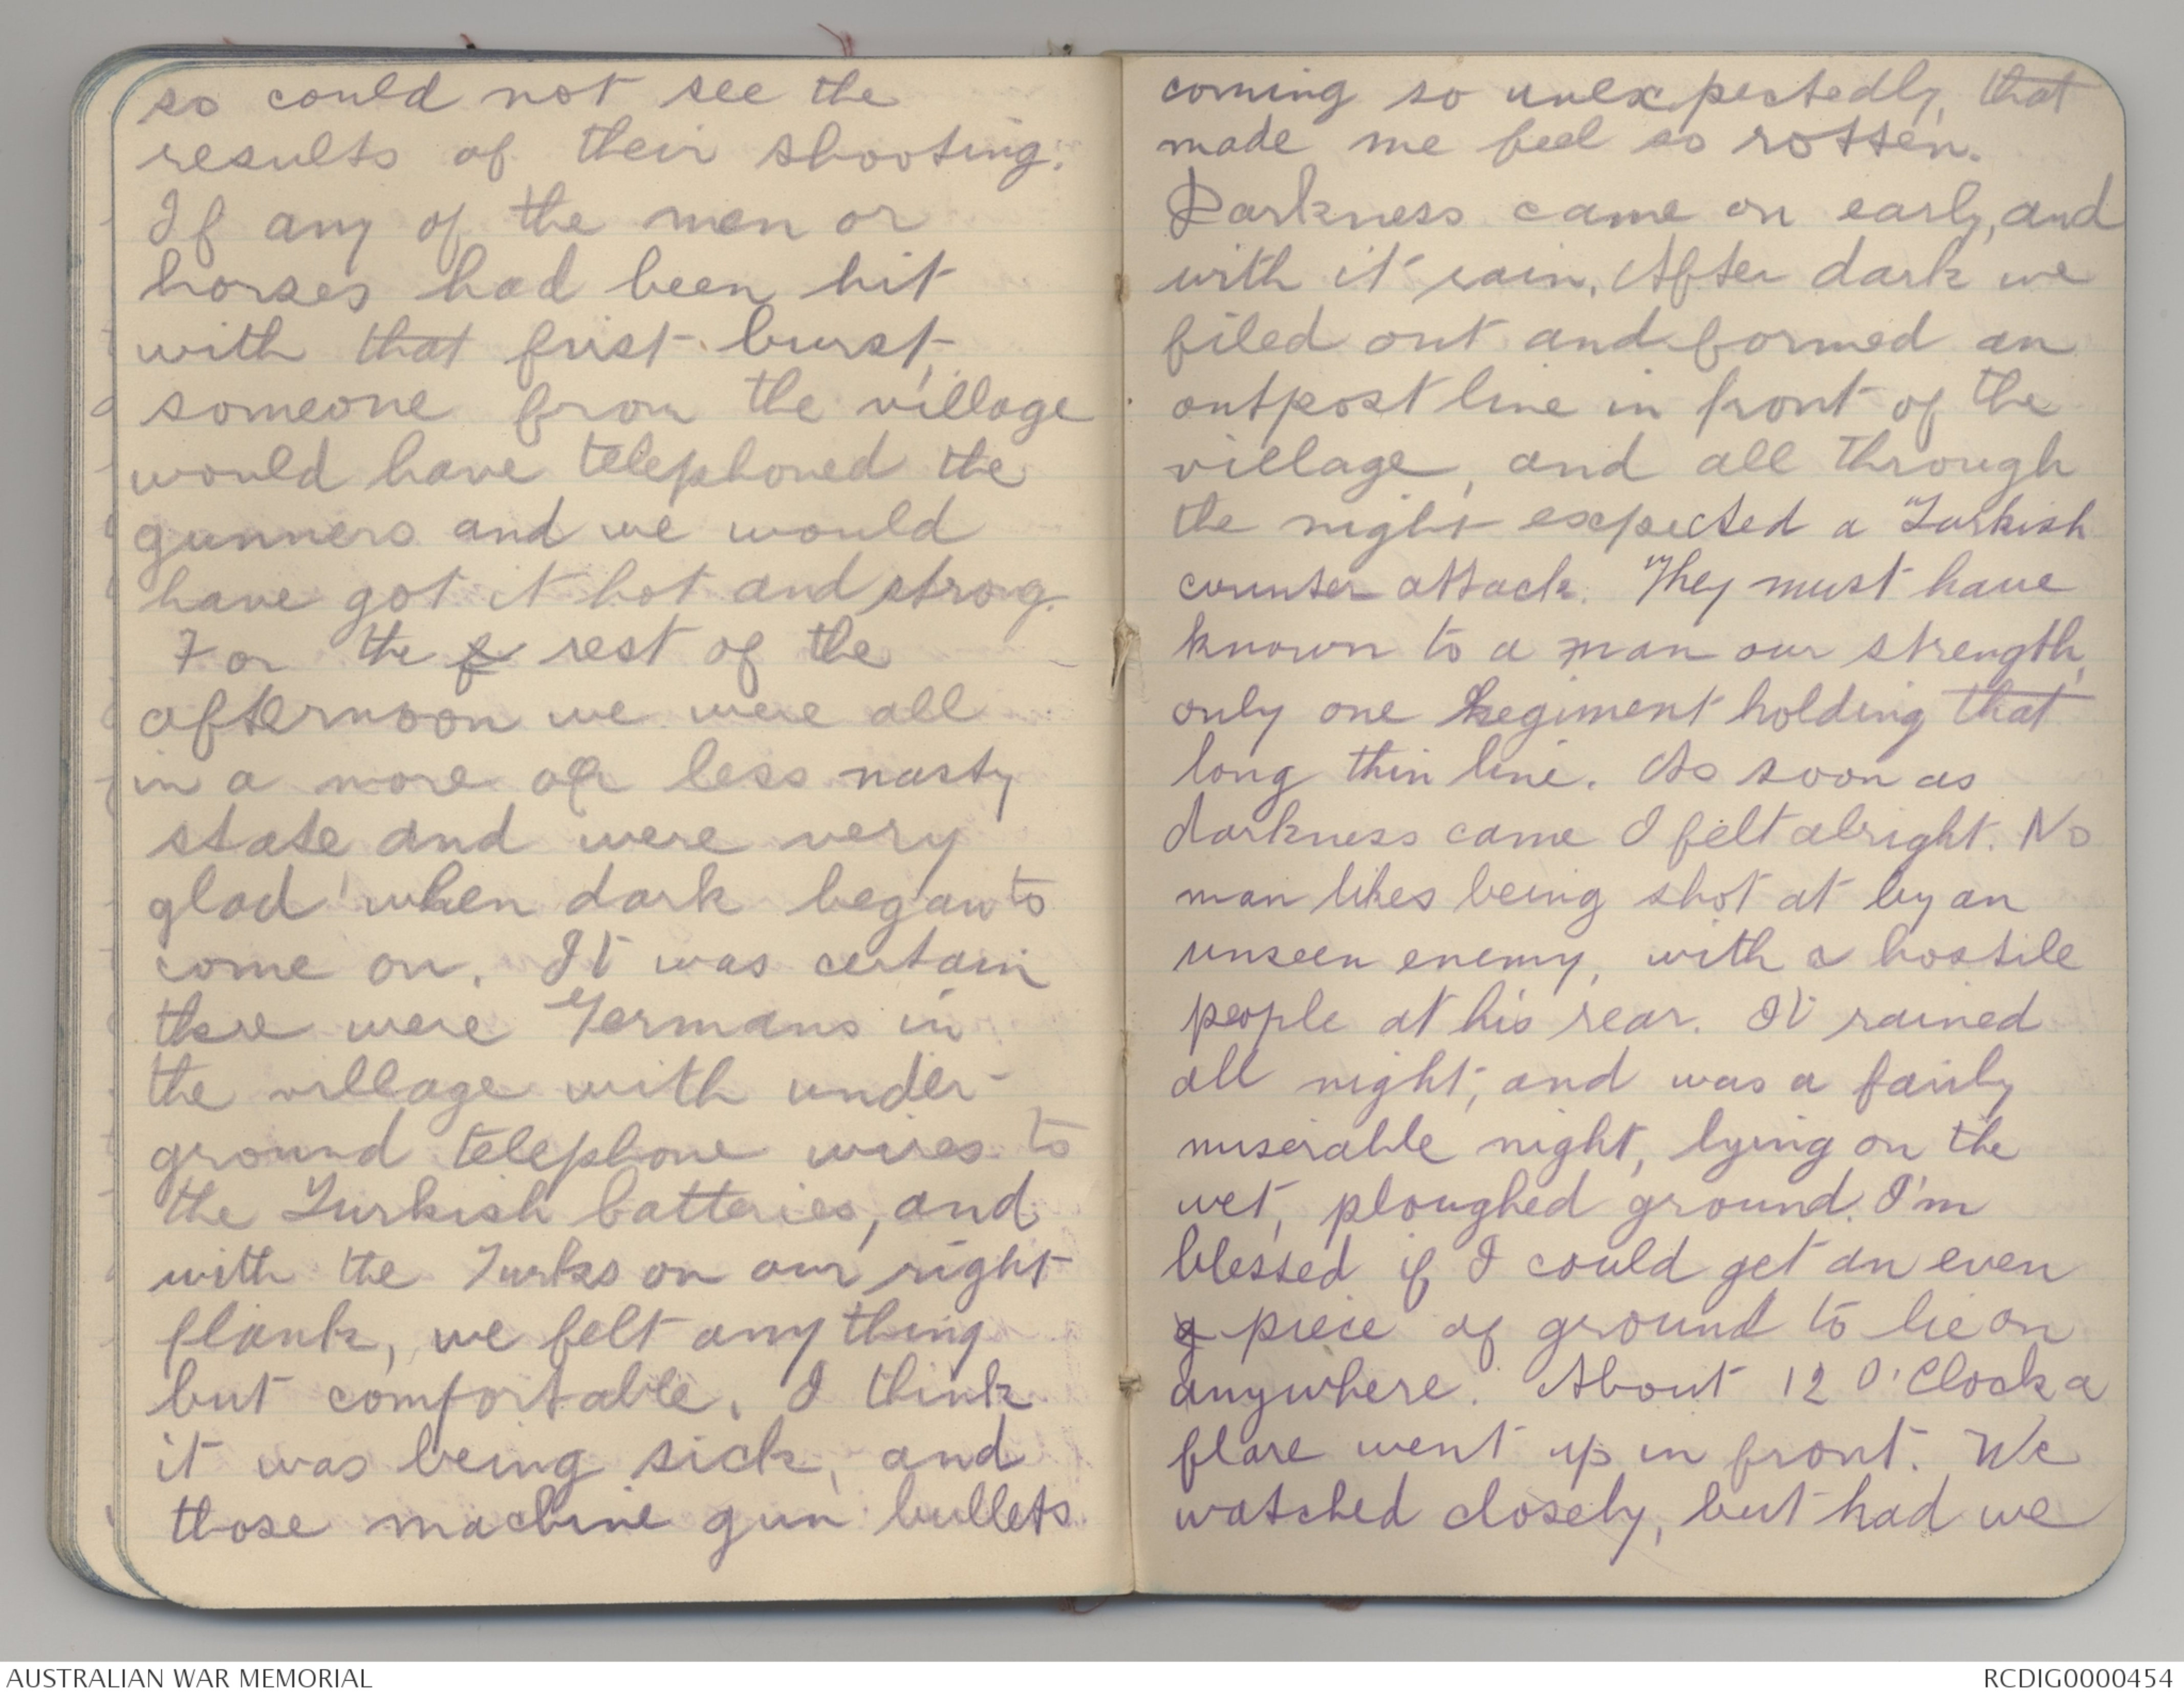 so could not see the
results of their shooting.
If any of the men or
horses had been hit
with that first burst,
someone from the village
would have telephoned the
gunners and we would
have got it hot and strong.
For the f rest of the
afternoon we were all
in a more or less nasty
state and were very
glad when dark began to
come on. It was certain
there were Germans in
the village with under-
ground telephone wires to
the Turkish batteries, and
with the Turks on our right
flank, we felt any thing
but comfortable. I think
it was being sick, and
those machine gun bullets
coming so unexpectedly, that
made me feel so rotten.
Darkness came on early, and
with it rain. After dark we
filed out and formed an
outpost line in front of the
village, and all through
the night expected a Turkish
counter attack. They must have
known to a man our strength,
only one Regiment holding that
long thin line. As soon as
darkness came I felt alright. No
man likes being shot at by an
unseen enemy, with a hostile
people at his rear. It rained
all night, and was a fairly
miserable night, lying on the
wet, ploughed ground. I'm
blessed if I could get an even
g piece of ground to lie on
anywhere. About 12 O'Clock a
flare went up in front. We
watched closely, but had we
AUSTRALIAN WAR MEMORIAL
RCDIG0000454